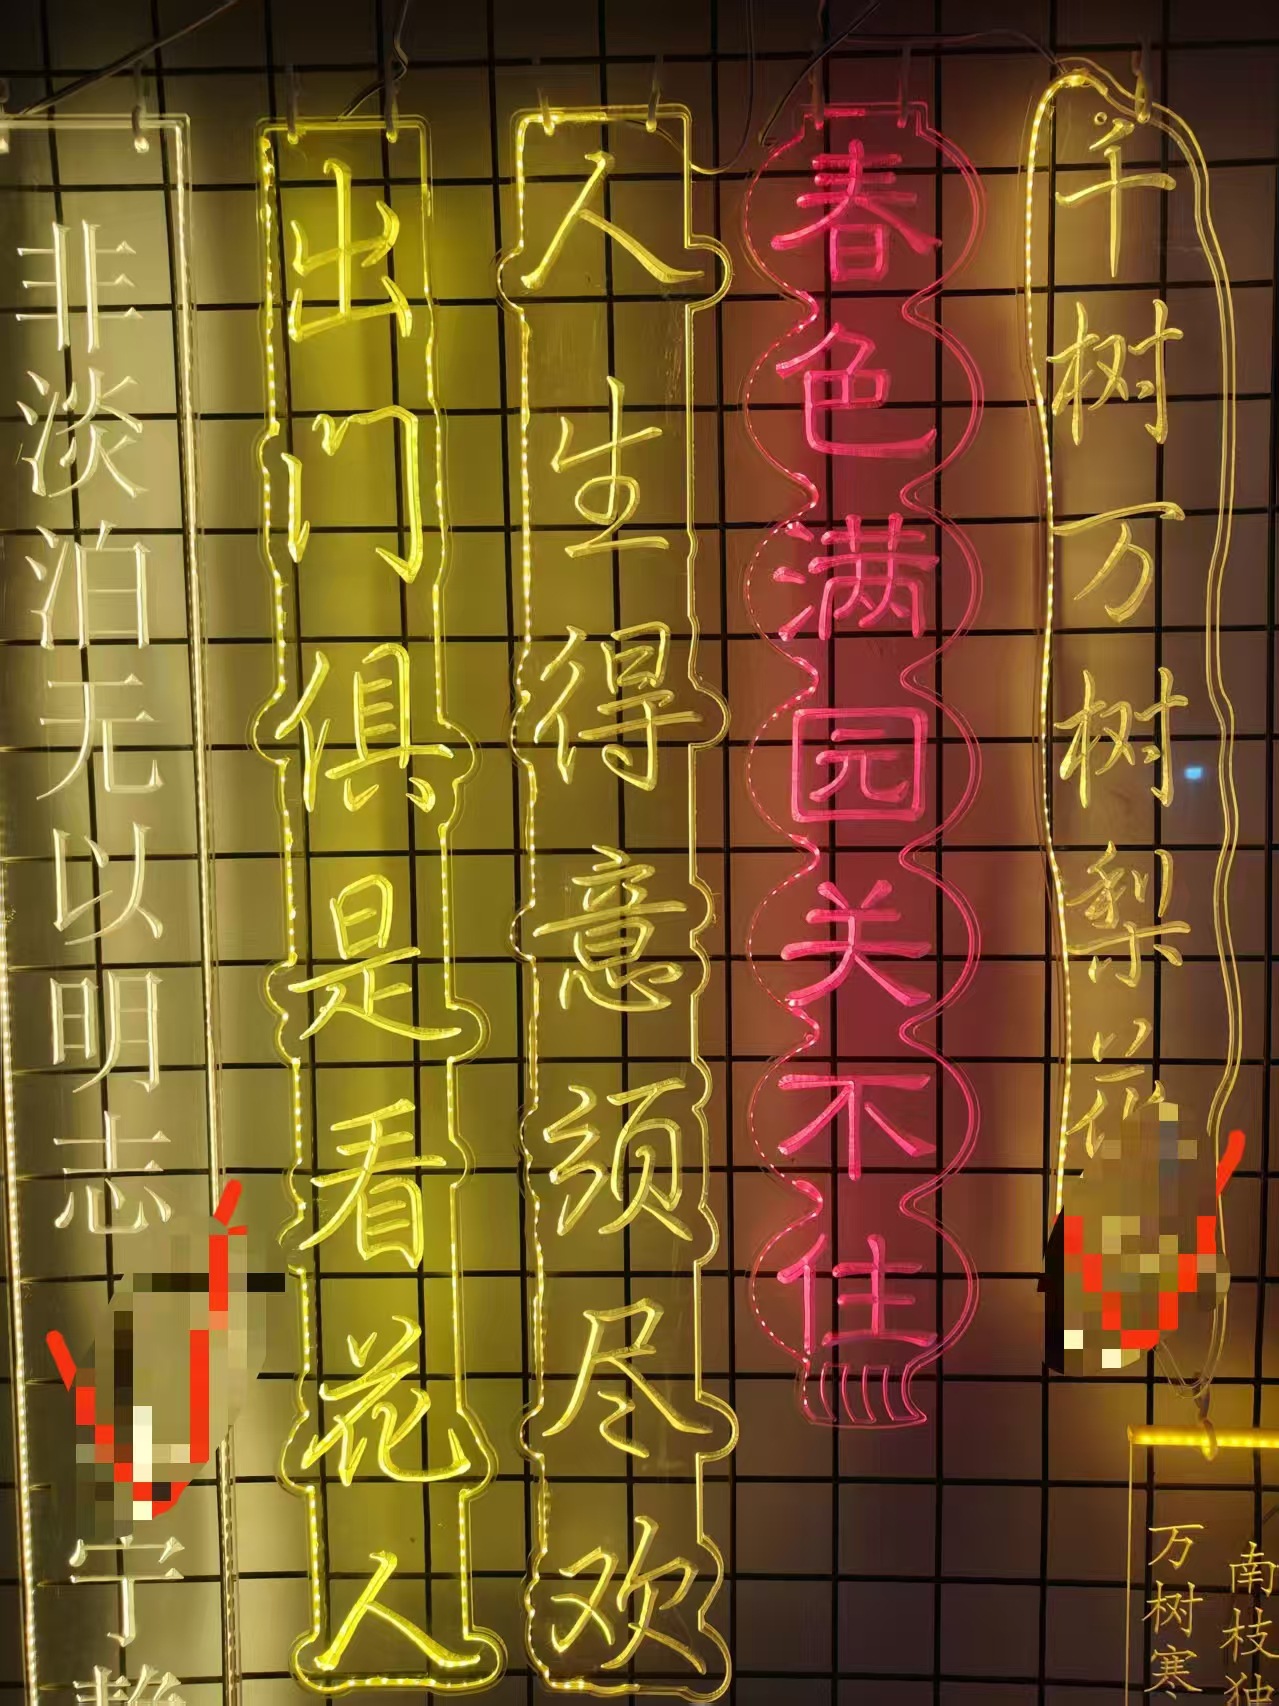 非淡泊无以明志
宁静
出门俱是看花人
人生得意须尽欢
春色满园关不住
千树万树梨花
万树寒
南枝独